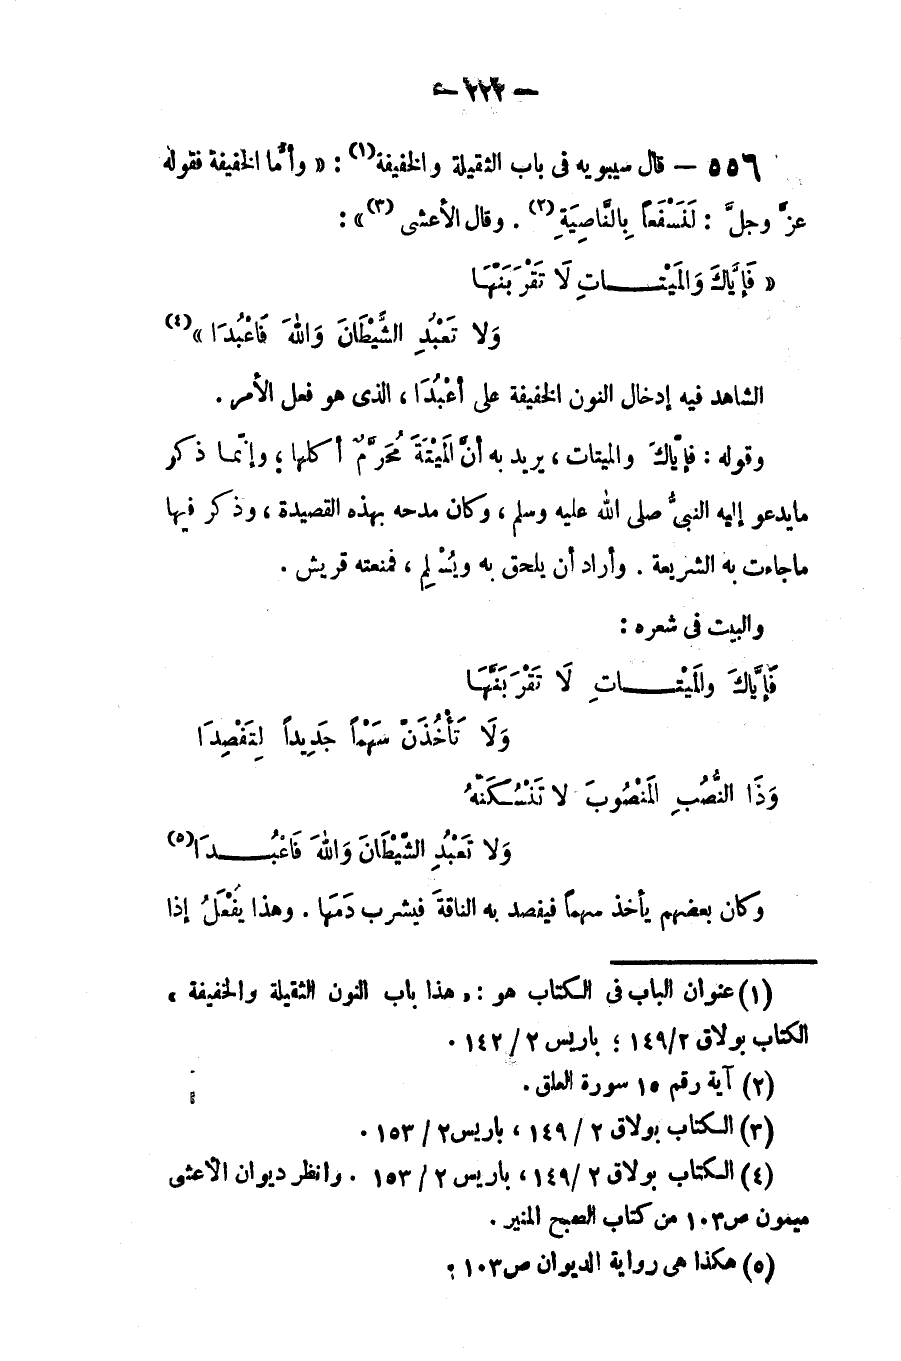 — ٢٢٢ —
٥٥٦ — قال سيبويه فى باب الثقيلة والخفيفة(١) : « وأمّا الخفيفة فقوله
عزّ وجلّ : لَنَسْفَعاً بِالنَّاصِيَةِ(٢) . وقال الأعشى (٣)» :
« فَإِيَّاكَ وَالمَيْتَـاتِ لَا تَقْرَبَنَّهَا
وَلا تَعْبُدِ الشَّيْطَانَ وَاللهَ فَاعْبُدَا »(٤)
الشاهد فيه إدخال النون الخفيفة على أعْبُدَا ، الذى هو فعل الأمر .
وقوله : فإيّاكَ والميتات ، يريد به أنَّ المَيْتَةَ مُحَرَّمٌ أكلها ؛ وإنّما ذكر
مايدعو إليه النبىُّ صلى الله عليه وسلم ، وكان مدحه بهذه القصيدة ، وذكر فيها
ماجاءت به الشريعة . وأراد أن يلحق به ويُسْلِم ، فمنعته قريش .
والبيت فى شعره :
فَإِيَّاكَ والمَيْتَـاتِ لَا تَقْرَبَنَّهَا
وَلَا تَأْخُذَنَّ سَهْماً جَدِيداً لِتَفْصِدَا
وَذَا النُّصُبِ المَنْصُوبَ لا تَنْسُكَنَّهُ
وَلا تَعْبُدِ الشَّيْطَانَ وَاللهَ فَاعْبُـدَا(٥)
وكان بعضهم يأخذ سهماً فيفصد به الناقةَ فيشرب دَمَها . وهذا يُفْعَلُ إذا
(١) عنوان الباب فى الكتاب هو : « هذا باب النون الثقيلة والخفيفة »
الكتاب بولاق ١٤٩/٢ ؛ باريس ٢ / ١٤٢ .
(٢) آية رقم ١٥ سورة العلق .
(٣) الكتاب بولاق ٢ / ١٤٩ ، باريس ٢ / ١٥٣ .
(٤) الكتاب بولاق ٢ /١٤٩ ، باريس ٢ / ١٥٣ . وانظر ديوان الأعشى
ميمون ص١٠٣ من كتاب الصبح المنير .
(٥) هكذا هى رواية الديوان ص١٠٣ .